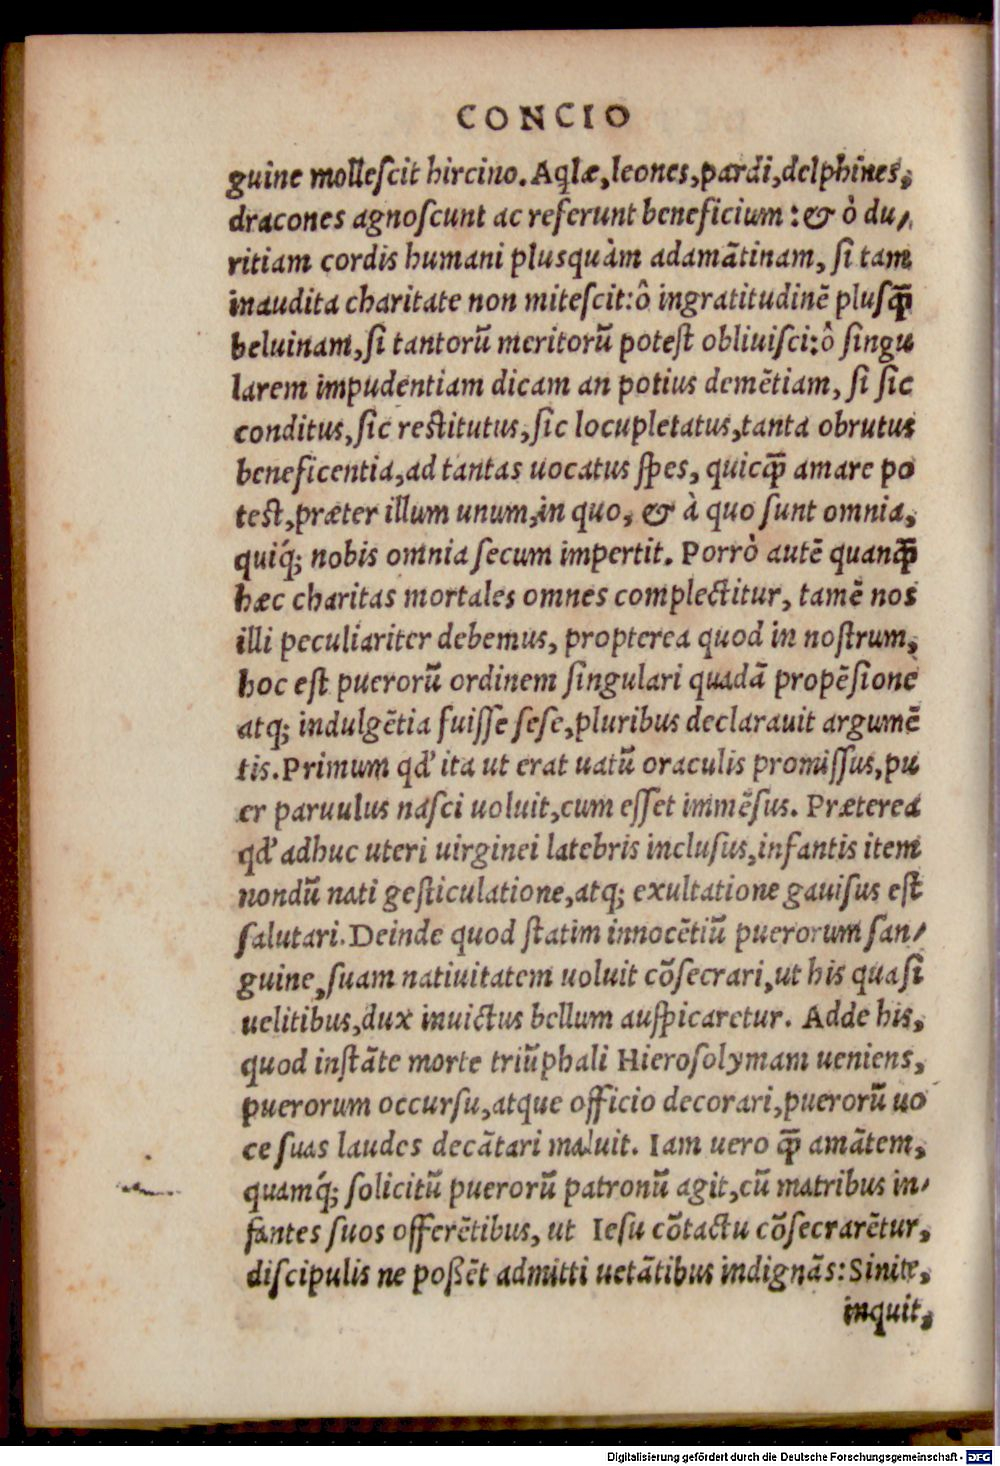 CONCIO
guine molleſcit hircino. Aq̃læ, leones, pardi, delphines,
dracones agnoſcunt ac referunt beneficium: & ò du-
ritiam cordis humani plusquàm adamãtinam, ſi tam
inaudita charitate non miteſcit: ô ingratitudinẽ pluſq̃
beluinam, ſi tantorũ meritorũ poteſt obliuiſci: ô ſingu
larem impudentiam dicam an potius demẽtiam, ſi ſic
conditus, ſic reſtitutus, ſic locupletatus, tanta obrutus
beneficentia, ad tantas uocatus ſpes, quicq̃ amare po
teſt, præter illum unum, in quo, & à quo ſunt omnia,
quiq́; nobis omnia ſecum impertit. Porrò autẽ quanq̃
hæc charitas mortales omnes complectitur, tamẽ nos
illi peculiariter debemus, propterea quod in noſtrum,
hoc eſt puerorũ ordinem ſingulari quadã propẽſione
atq; indulgẽtia fuiſſe ſeſe, pluribus declarauit argumẽ
tis. Primum qd' ita ut erat uatũ oraculis promiſſus, pu
er paruulus naſci uoluit, cum eſſet immẽſus. Præterea
qd' adhuc uteri uirginei latebris incluſus, infantis item
nondũ nati geſticulatione, atq; exultatione gauiſus eſt
ſalutari. Deinde quod ſtatim innocẽtiũ puerorum ſan-
guine, ſuam natiuitatem uoluit cõſecrari, ut his quaſi
uelitibus, dux inuictus bellum auſpicaretur. Adde his,
quod inſtãte morte triũphali Hieroſolymam ueniens,
puerorum occurſu, atque officio decorari, puerorũ uo
ce ſuas laudes decãtari maluit. Iam uero q̃ amãtem,
quamq́; ſolicitũ puerorũ patronũ agit, cũ matribus in-
fantes ſuos offerẽtibus, ut Ieſu cõtactu cõſecrarẽtur,
diſcipulis ne poßẽt admitti uetãtibus indignãs: Sinite,
inquit,
Digitalisierung gefördert durch die Deutsche Forschungsgemeinschaft - DFG